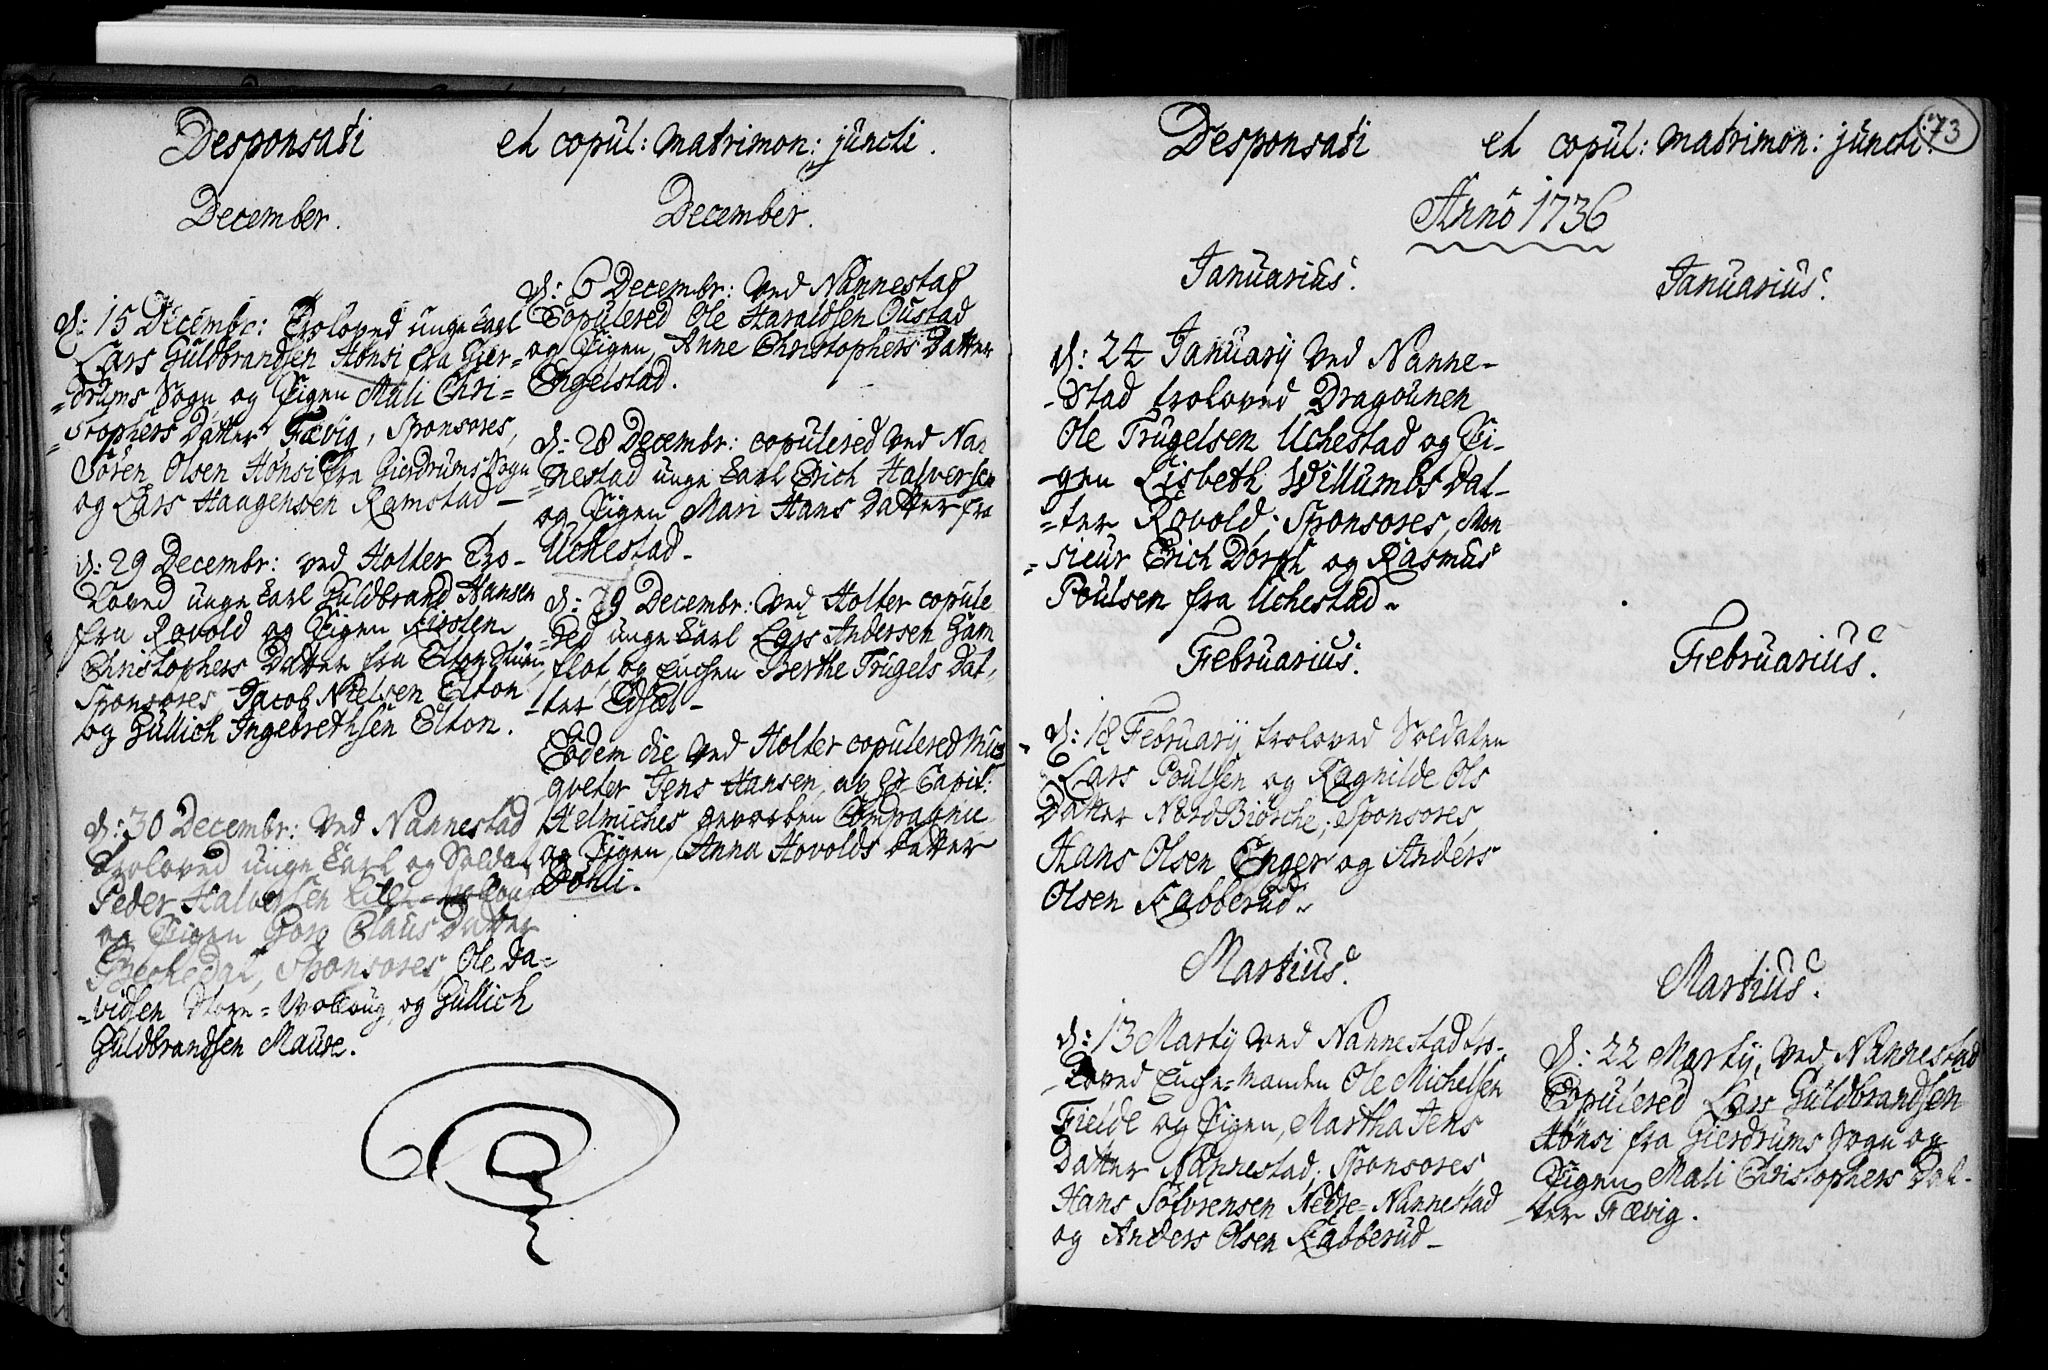 Desponsati et copul: matrimon: juncti.
December.
d: 15 Decembr: Troloved unge Karl
Lars Guldbrandsen Hønsi fra Gier-
=drums Sogn og Pigen Mali Chri=
=stophers Datter Fævig, Sponsores,
Søren Olsen Hønsi fra Gierdrums Sogn
og Lars Haagensen Ramstad –
d: 29 Decembr: ved Holter Tro-
loved unge Karl Guldbrand Hansen
fra Rovold og Pigen Kirsten
Christophers Datter fra Elton
Sponsores Jacob Nielsen Elton
og Gullich Ingebrethsen Elton.
d: 30 Decembr: ved Nannestad
Troloved unge Karl og Soldat
Peder Halversen
og Pigen Goro Claus Datter
Sponsores Ole Da=
=vidsen Store=Wolloug, og Gullich
Guldbrandsen Maure.
December.
d: 6 Decembr: ved Nannestad
Copulered Ole Haraldsen Oustad
og Pigen, Anne Christophers Datter
Engelstad.
d: 28 Decembr: copulered ved Nan
=nestad unge Karl Erich Halversen
og Pigen Mari Hans Datter fra
Uchestad –
d: 29 Decembr: ved Holter copule
=red unge Karl Lars Andersen Gam
flot og Enchen Berthe Trugels Dat,
=ter –
Eodem die ved Holter copulered Mus
qveter Jens Hansen, af Hr Capit:
Helmiches gevorben Compagnie
og Pigen, Anna Hovolds Datter
Døhli.
Desponsati et copul: matrimon: juncti. 73
Anno 1736
Januarius.
d: 24 January ved Nanne-
-stad troloved Dragounen
Ole Trugelsen Uchestad og Pi-
-gen Lisbeth Willumbs Dat-
=ter Rovold; Sponsores, Mon
=sieur Erich Dorph og Rasmus
Poulsen fra Uchestad –
Februarius.
d: 18 February troloved Soldaten
Lars Poulsen og Ragnilde Ols
Datter NordBiørche; Sponsores,
Hans Olsen Enger og Anders
Olsen Kabberud –
Martius.
d: 13 Marty ved Nannestad tro-
loved Enche=Manden Ole Michelsen
Fielde og Pigen, Martha Jens
Datter Nannestad; Sponsores
Hans Sofvrensen Nedre=Nannestad
og Anders Olsen Kabberud –
Januarius.
Februarius.
Martius.
d: 22 Marty, ved Nannestad
Copulered Lars Guldbrandsen
Hønsi fra Gierdrums Sogn og
Pigen Mali Christophers Dat-
=ter Fævig.